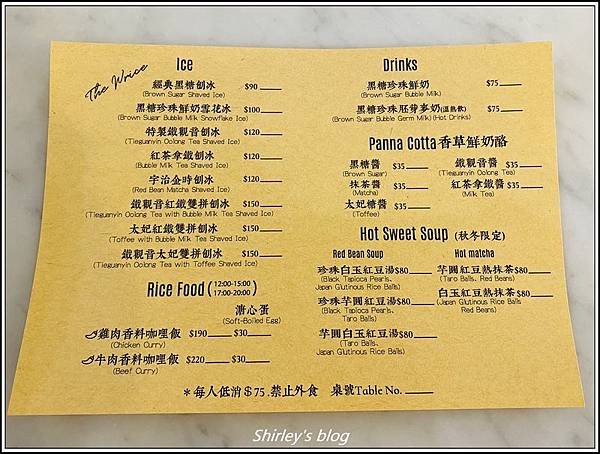 The Wrice
Ice
經典黑糖刨冰 $90
(Brown Sugar Shaved Ice)
黑糖珍珠鮮奶雪花冰 $100
(Brown Sugar Bubble Milk Snowflake Ice)
特製鐵觀音刨冰 $120
(Tieguanyin Oolong Tea Shaved Ice)
紅茶拿鐵刨冰 $120
(Bubble Milk Tea Shaved Ice)
宇治金時刨冰 $120
(Red Bean Matcha Shaved Ice)
鐵觀音紅鐵雙拼刨冰 $150
(Tieguanyin Oolong Tea with Bubble Milk Tea Shaved Ice)
太妃紅鐵雙拼刨冰 $150
(Toffee with Bubble Milk Tea Shaved Ice)
鐵觀音太妃雙拼刨冰 $150
(Tieguanyin Oolong Tea with Toffee Shaved Ice)
Rice Food (12:00-15:00 17:00-20:00)
溏心蛋
(Soft-Boiled Egg)
雞肉香料咖哩飯 $190 $30
(Chicken Curry)
牛肉香料咖哩飯 $220 $30
(Beef Curry)
Drinks
黑糖珍珠鮮奶 $75
(Brown Sugar Bubble Milk)
黑糖珍珠胚芽麥奶(溫熱飲) $75
(Brown Sugar Bubble Germ Milk) (Hot Drinks)
Panna Cotta 香草鮮奶酪
黑糖醬 $35 鐵觀音醬 $35
(Brown Sugar) (Tieguanyin Oolong Tea)
抹茶醬 $35 紅茶拿鐵醬 $35
(Matcha) (Milk Tea)
太妃糖醬 $35
(Toffee)
Hot Sweet Soup (秋冬限定)
Red Bean Soup Hot matcha
珍珠白玉紅豆湯$80 芋圓紅豆熱抹茶$80
(Black Tapioca Pearls, (Taro Balls, Red Beans)
Japan Glutinous Rice Balls)
珍珠芋圓紅豆湯$80 白玉紅豆熱抹茶$80
(Black Tapioca Pearls, (Japan Glutinous Rice Balls
Taro Balls) Red Beans)
芋圓白玉紅豆湯$80
(Taro Balls,
Japan Glutinous Rice Balls)
＊每人低消＄75 .禁止外食 桌號Table No.
Shirley's blog